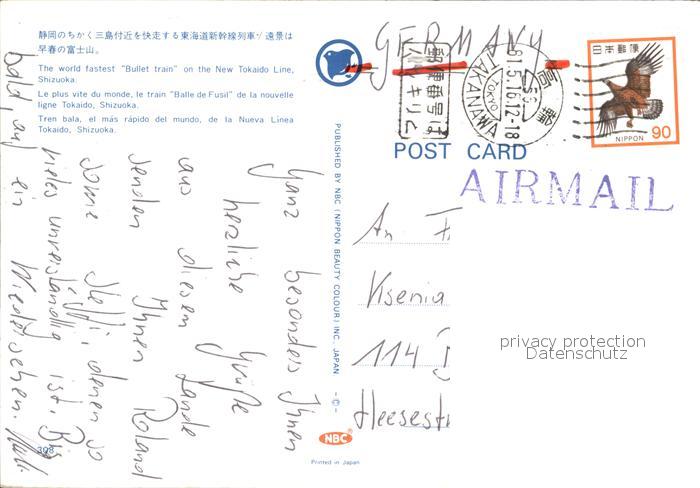 静岡のちかく三島付近を快走する東海道新幹線列車。遠景は
早春の富士山。
The world fastest "Bullet train" on the New Tokaido Line,
Shizuoka.
Le plus vite du monde, le train "Balle de Fusil" de la nouvelle
ligne Tokaido, Shizuoka.
Tren bala, el más rápido del mundo, de la Nueva Linea
Tokaido, Shizuoka.
Ganz besonders Ihnen
herzliche Grüße
aus diesem Lande
senden Ihnen Roland
sowie Steffi, denen so
vieles unverständlich ist. Bis
bald, auf ein Wiedersehen.
308
PUBLISHED BY NBC (NIPPON BEAUTY COLOUR) INC. JAPAN
-©-
NBC
Printed in Japan
GERMANY
郵便番号は
TAKANAWA
TOKYO
81.5.16.12-18
56
高輪
日本郵便
NIPPON 90
POST CARD
AIRMAIL
An F
Ksenia
114
Heesestr
privacy protection
Datenschutz